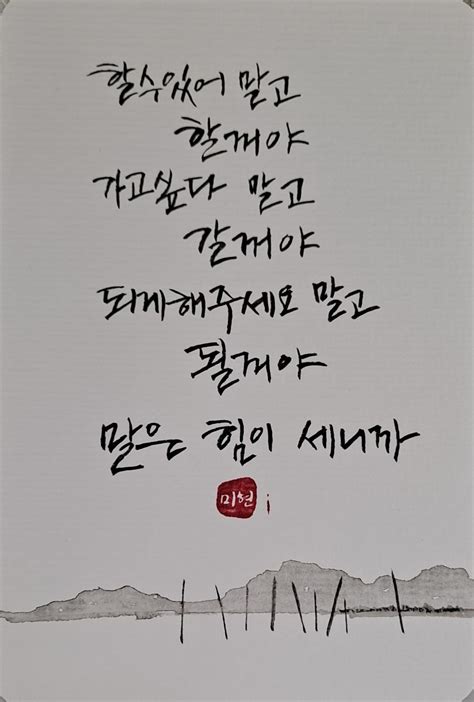 할수있어 말고
할꺼야
가고싶다 말고
갈꺼야
되게해주세요 말고
될꺼야
말은 힘이 세니까
미현